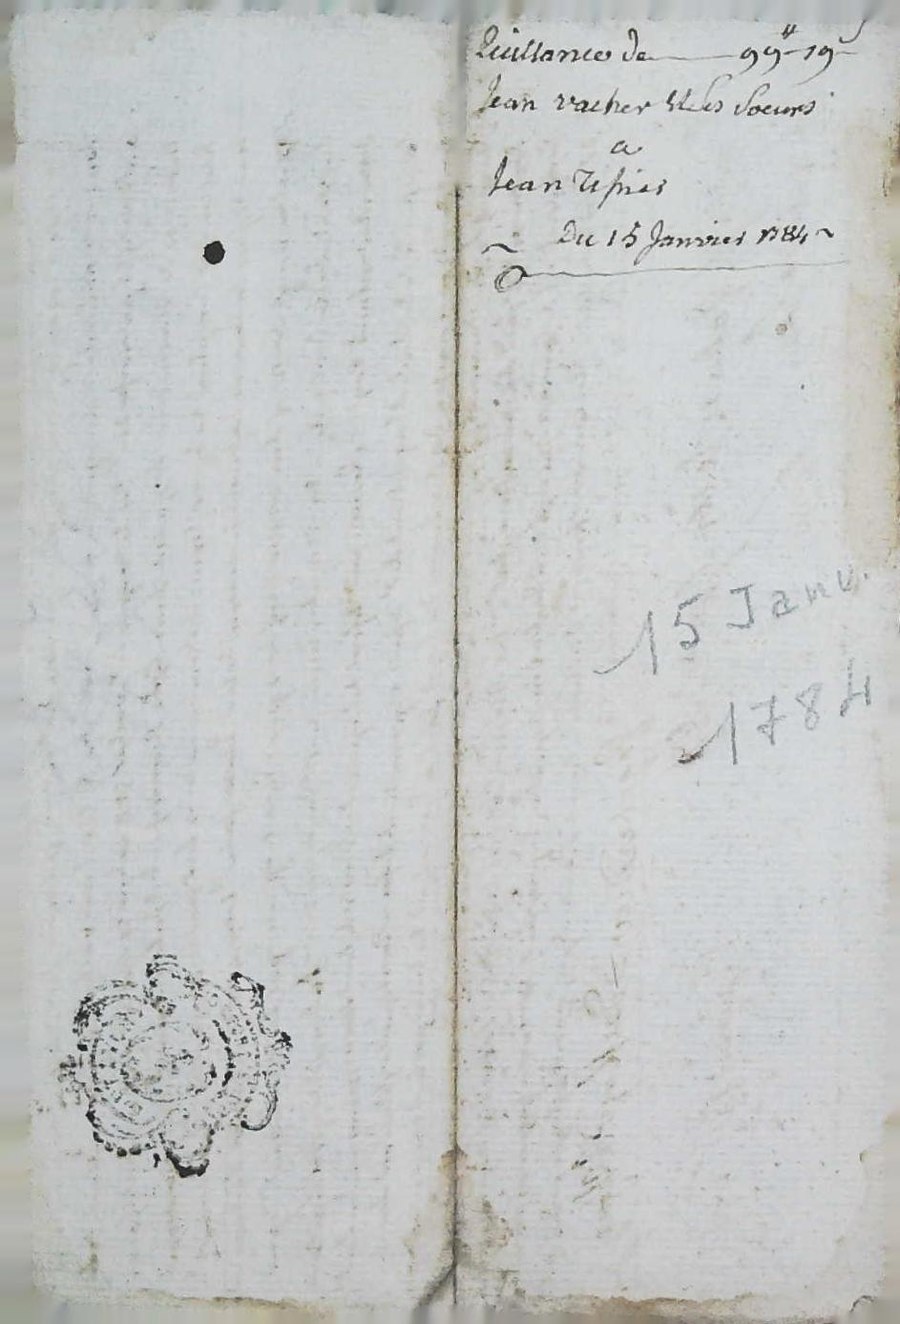 Quittance de 99ᵗᵗ 19ˢ
Jean vacher & ses Soeurs
a
Jean
Du 15 Janvier 1784
15 Janv.
1784